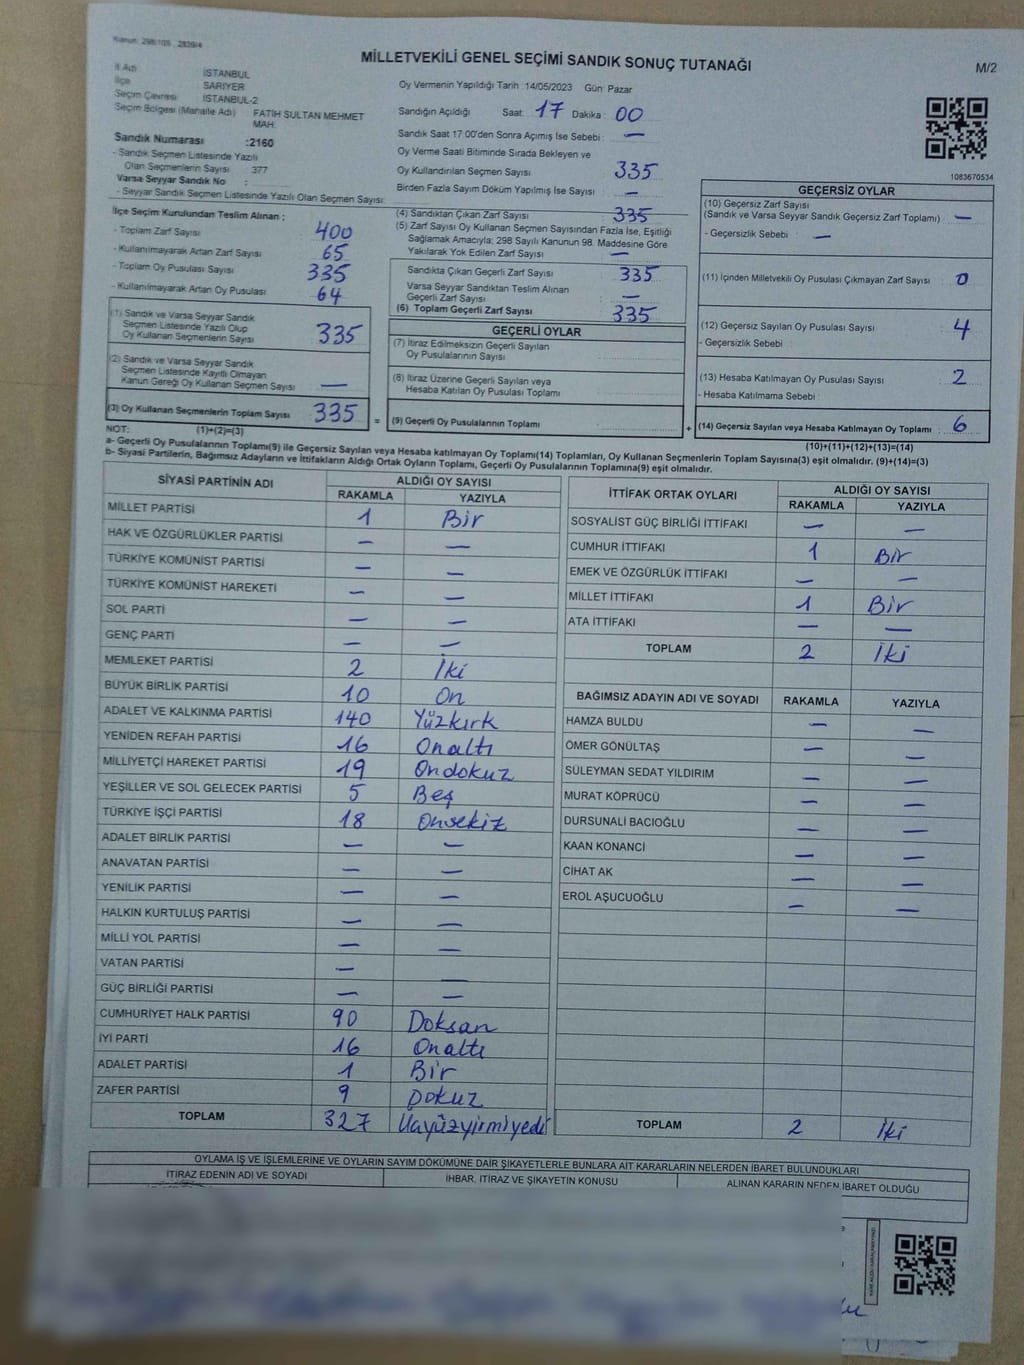 Kanun: 298/105 , 2839/4
MİLLETVEKİLİ GENEL SEÇİMİ SANDIK SONUÇ TUTANAĞI
M/2
İl Adı İSTANBUL
İlçe SARIYER
Seçim Çevresi İSTANBUL-2
Seçim Bölgesi (Mahalle Adı) FATİH SULTAN MEHMET MAH.
Sandık Numarası :2160
- Sandık Seçmen Listesinde Yazılı
Olan Seçmenlerin Sayısı 377
Varsa Seyyar Sandık No :
- Seyyar Sandık Seçmen Listesinde Yazılı Olan Seçmen Sayısı:
Oy Vermenin Yapıldığı Tarih :14/05/2023 Gün: Pazar
Sandığın Açıldığı Saat: 17 Dakika : 00
Sandık Saat 17:00'den Sonra Açımış İse Sebebi : —
Oy Verme Saati Bitiminde Sırada Bekleyen ve
Oy Kullandırılan Seçmen Sayısı : 335
Birden Fazla Sayım Döküm Yapılmış İse Sayısı : —
1083670534
İlçe Seçim Kurulundan Teslim Alınan ;
- Toplam Zarf Sayısı : 400
- Kullanılmayarak Artan Zarf Sayısı : 65
- Toplam Oy Pusulası Sayısı : 335
- Kullanılmayarak Artan Oy Pusulası : 64
(1) Sandık ve Varsa Seyyar Sandık
Seçmen Listesinde Yazılı Olup
Oy Kullanan Seçmenlerin Sayısı : 335
(2) Sandık ve Varsa Seyyar Sandık
Seçmen Listesinde Kayıtlı Olmayan
Kanun Gereği Oy Kullanan Seçmen Sayısı : —
(3) Oy Kullanan Seçmenlerin Toplam Sayısı : 335 =
(1)+(2)=(3)
(4) Sandıktan Çıkan Zarf Sayısı : 335
(5) Zarf Sayısı Oy Kullanan Seçmen Sayısından Fazla İse, Eşitliği
Sağlamak Amacıyla; 298 Sayılı Kanunun 98. Maddesine Göre
Yakılarak Yok Edilen Zarf Sayısı : —
Sandıkta Çıkan Geçerli Zarf Sayısı : 335
Varsa Seyyar Sandıktan Teslim Alınan
Geçerli Zarf Sayısı : —
(6) Toplam Geçerli Zarf Sayısı : 335
GEÇERLİ OYLAR
(7) İtiraz Edilmeksizin Geçerli Sayılan
Oy Pusulalarının Sayısı :
(8) İtiraz Üzerine Geçerli Sayılan veya
Hesaba Katılan Oy Pusulası Toplamı :
(9) Geçerli Oy Pusulalarının Toplamı : +
GEÇERSİZ OYLAR
(10) Geçersiz Zarf Sayısı
(Sandık ve Varsa Seyyar Sandık Geçersiz Zarf Toplamı) : —
- Geçersizlik Sebebi : —
(11) İçinden Milletvekili Oy Pusulası Çıkmayan Zarf Sayısı : 0
(12) Geçersiz Sayılan Oy Pusulası Sayısı : 4
- Geçersizlik Sebebi :
(13) Hesaba Katılmayan Oy Pusulası Sayısı : 2
- Hesaba Katılmama Sebebi :
(14) Geçersiz Sayılan veya Hesaba Katılmayan Oy Toplamı : 6
(10)+(11)+(12)+(13)=(14)
NOT:
a- Geçerli Oy Pusulalarının Toplamı(9) ile Geçersiz Sayılan veya Hesaba katılmayan Oy Toplamı(14) Toplamları, Oy Kullanan Seçmenlerin Toplam Sayısına(3) eşit olmalıdır. (9)+(14)=(3)
b- Siyasi Partilerin, Bağımsız Adayların ve İttifakların Aldığı Ortak Oyların Toplamı, Geçerli Oy Pusulalarının Toplamına(9) eşit olmalıdır.
SİYASİ PARTİNİN ADI ALDIĞI OY SAYISI
RAKAMLA YAZIYLA
MİLLET PARTİSİ 1 Bir
HAK VE ÖZGÜRLÜKLER PARTİSİ — —
TÜRKİYE KOMÜNİST PARTİSİ — —
TÜRKİYE KOMÜNİST HAREKETİ — —
SOL PARTİ — —
GENÇ PARTİ — —
MEMLEKET PARTİSİ 2 İki
BÜYÜK BİRLİK PARTİSİ 10 On
ADALET VE KALKINMA PARTİSİ 140 Yüzkırk
YENİDEN REFAH PARTİSİ 16 Onaltı
MİLLİYETÇİ HAREKET PARTİSİ 19 Ondokuz
YEŞİLLER VE SOL GELECEK PARTİSİ 5 Beş
TÜRKİYE İŞÇİ PARTİSİ 18 Onsekiz
ADALET BİRLİK PARTİSİ — —
ANAVATAN PARTİSİ — —
YENİLİK PARTİSİ — —
HALKIN KURTULUŞ PARTİSİ — —
MİLLİ YOL PARTİSİ — —
VATAN PARTİSİ — —
GÜÇ BİRLİĞİ PARTİSİ — —
CUMHURİYET HALK PARTİSİ 90 Doksan
İYİ PARTİ 16 Onaltı
ADALET PARTİSİ 1 Bir
ZAFER PARTİSİ 9 Dokuz
TOPLAM 327 Üçyüzyirmiyedi
İTTİFAK ORTAK OYLARI ALDIĞI OY SAYISI
RAKAMLA YAZIYLA
SOSYALİST GÜÇ BİRLİĞİ İTTİFAKI — —
CUMHUR İTTİFAKI 1 Bir
EMEK VE ÖZGÜRLÜK İTTİFAKI — —
MİLLET İTTİFAKI 1 Bir
ATA İTTİFAKI — —
TOPLAM 2 İki
BAĞIMSIZ ADAYIN ADI VE SOYADI RAKAMLA YAZIYLA
HAMZA BULDU — —
ÖMER GÖNÜLTAŞ — —
SÜLEYMAN SEDAT YILDIRIM — —
MURAT KÖPRÜCÜ — —
DURSUNALİ BACIOĞLU — —
KAAN KONANCİ — —
CİHAT AK — —
EROL AŞUCUOĞLU — —
TOPLAM 2 İki
OYLAMA İŞ VE İŞLEMLERİNE VE OYLARIN SAYIM DÖKÜMÜNE DAİR ŞİKAYETLERLE BUNLARA AİT KARARLARIN NELERDEN İBARET BULUNDUKLARI
İTİRAZ EDENİN ADI VE SOYADI İHBAR, İTİRAZ VE ŞİKAYETİN KONUSU ALINAN KARARIN NEDEN İBARET OLDUĞU